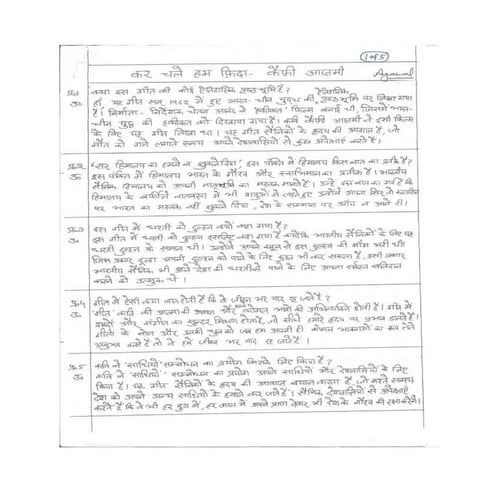 1 of 5
कर चले हम फ़िदा - कैफ़ी आज़मी
प्र.1 क्या इस गीत की कोई ऐतिहासिक पृष्ठभूमि है?
उ. हाँ, यह गीत सन् 1962 में हुए भारत-चीन युद्ध की पृष्ठभूमि पर लिखा गया
है। चेतन आनंद ने 'हकीकत' फिल्म बनाई थी, जिसमें भारत-
चीन युद्ध की हकीकत को दिखाया गया है। कैफ़ी आज़मी ने इसी फिल्म
के लिए यह गीत लिखा था। यह गीत सैनिकों के हृदय की आवाज़ है, जो
समय अपने देशवासियों से कुछ अपेक्षाएँ करते हैं।
प्र.2 'सर हिमालय का हमने न झुकने दिया', इस पंक्ति में हिमालय किस बात का प्रतीक है?
उ. इस पंक्ति में हिमालय भारत के गौरव और स्वाभिमान का प्रतीक है। भारतीय
सैनिक हिमालय को अपनी का मस्तक मानते हैं।
हिमालय के बर्फीले में भी शत्रुओं से
पर भारत का मस्तक नहीं झुकने दिया, देश के सम्मान पर आँच न आने दी।
प्र.3 इस गीत में धरती को दुल्हन क्यों कहा गया है?
उ. इस गीत में धरती को दुल्हन इसलिए कहा गया है क्योंकि भारतीय सैनिकों के लिए यह
धरती दुल्हन के समान थी। उन्होंने अपने खून से इस दुल्हन की माँग भरी थी।
जिस प्रकार दूल्हा अपनी दुल्हन को पाने के लिए कुछ भी कर सकता है, उसी प्रकार
भारतीय सैनिक भी अपने देश की पाने के लिए अपना सर्वस्व बलिदान
करने को थे।
प्र.4 गीत में ऐसी क्या बात होती है कि वे जीवन भर याद रह जाते हैं?
उ. गीत कवि की आत्मा की और कोमल भावों की अभिव्यक्ति होती है। गीत में
शब्दों और संगीत का सुन्दर होता है, जो सीधे हमारे हृदय पर प्रभाव डालते हैं।
गीतों के बोल और उनकी धुन को जब हम अपनी ही कोमल भावनाओं का रूप देकर
अनुभव करते हैं तो वे हमें जीवन भर याद रह जाते हैं।
प्र.5 कवि ने 'साथियों' सम्बोधन का प्रयोग किसके लिए किया है?
उ. कवि ने 'साथियों' सम्बोधन का प्रयोग अपने साथियों और देशवासियों के लिए
किया है। यह गीत सैनिकों के हृदय की आवाज़ बयान करता है, जो मरते समय
देश को अपने अन्य साथियों के हवाले कर जाते हैं। सैनिक देशवासियों से अपेक्षा
करते हैं कि वे भी हर युग में, हर काल में अपने प्राण देकर भी देश के गौरव की रक्षा करेंगे।